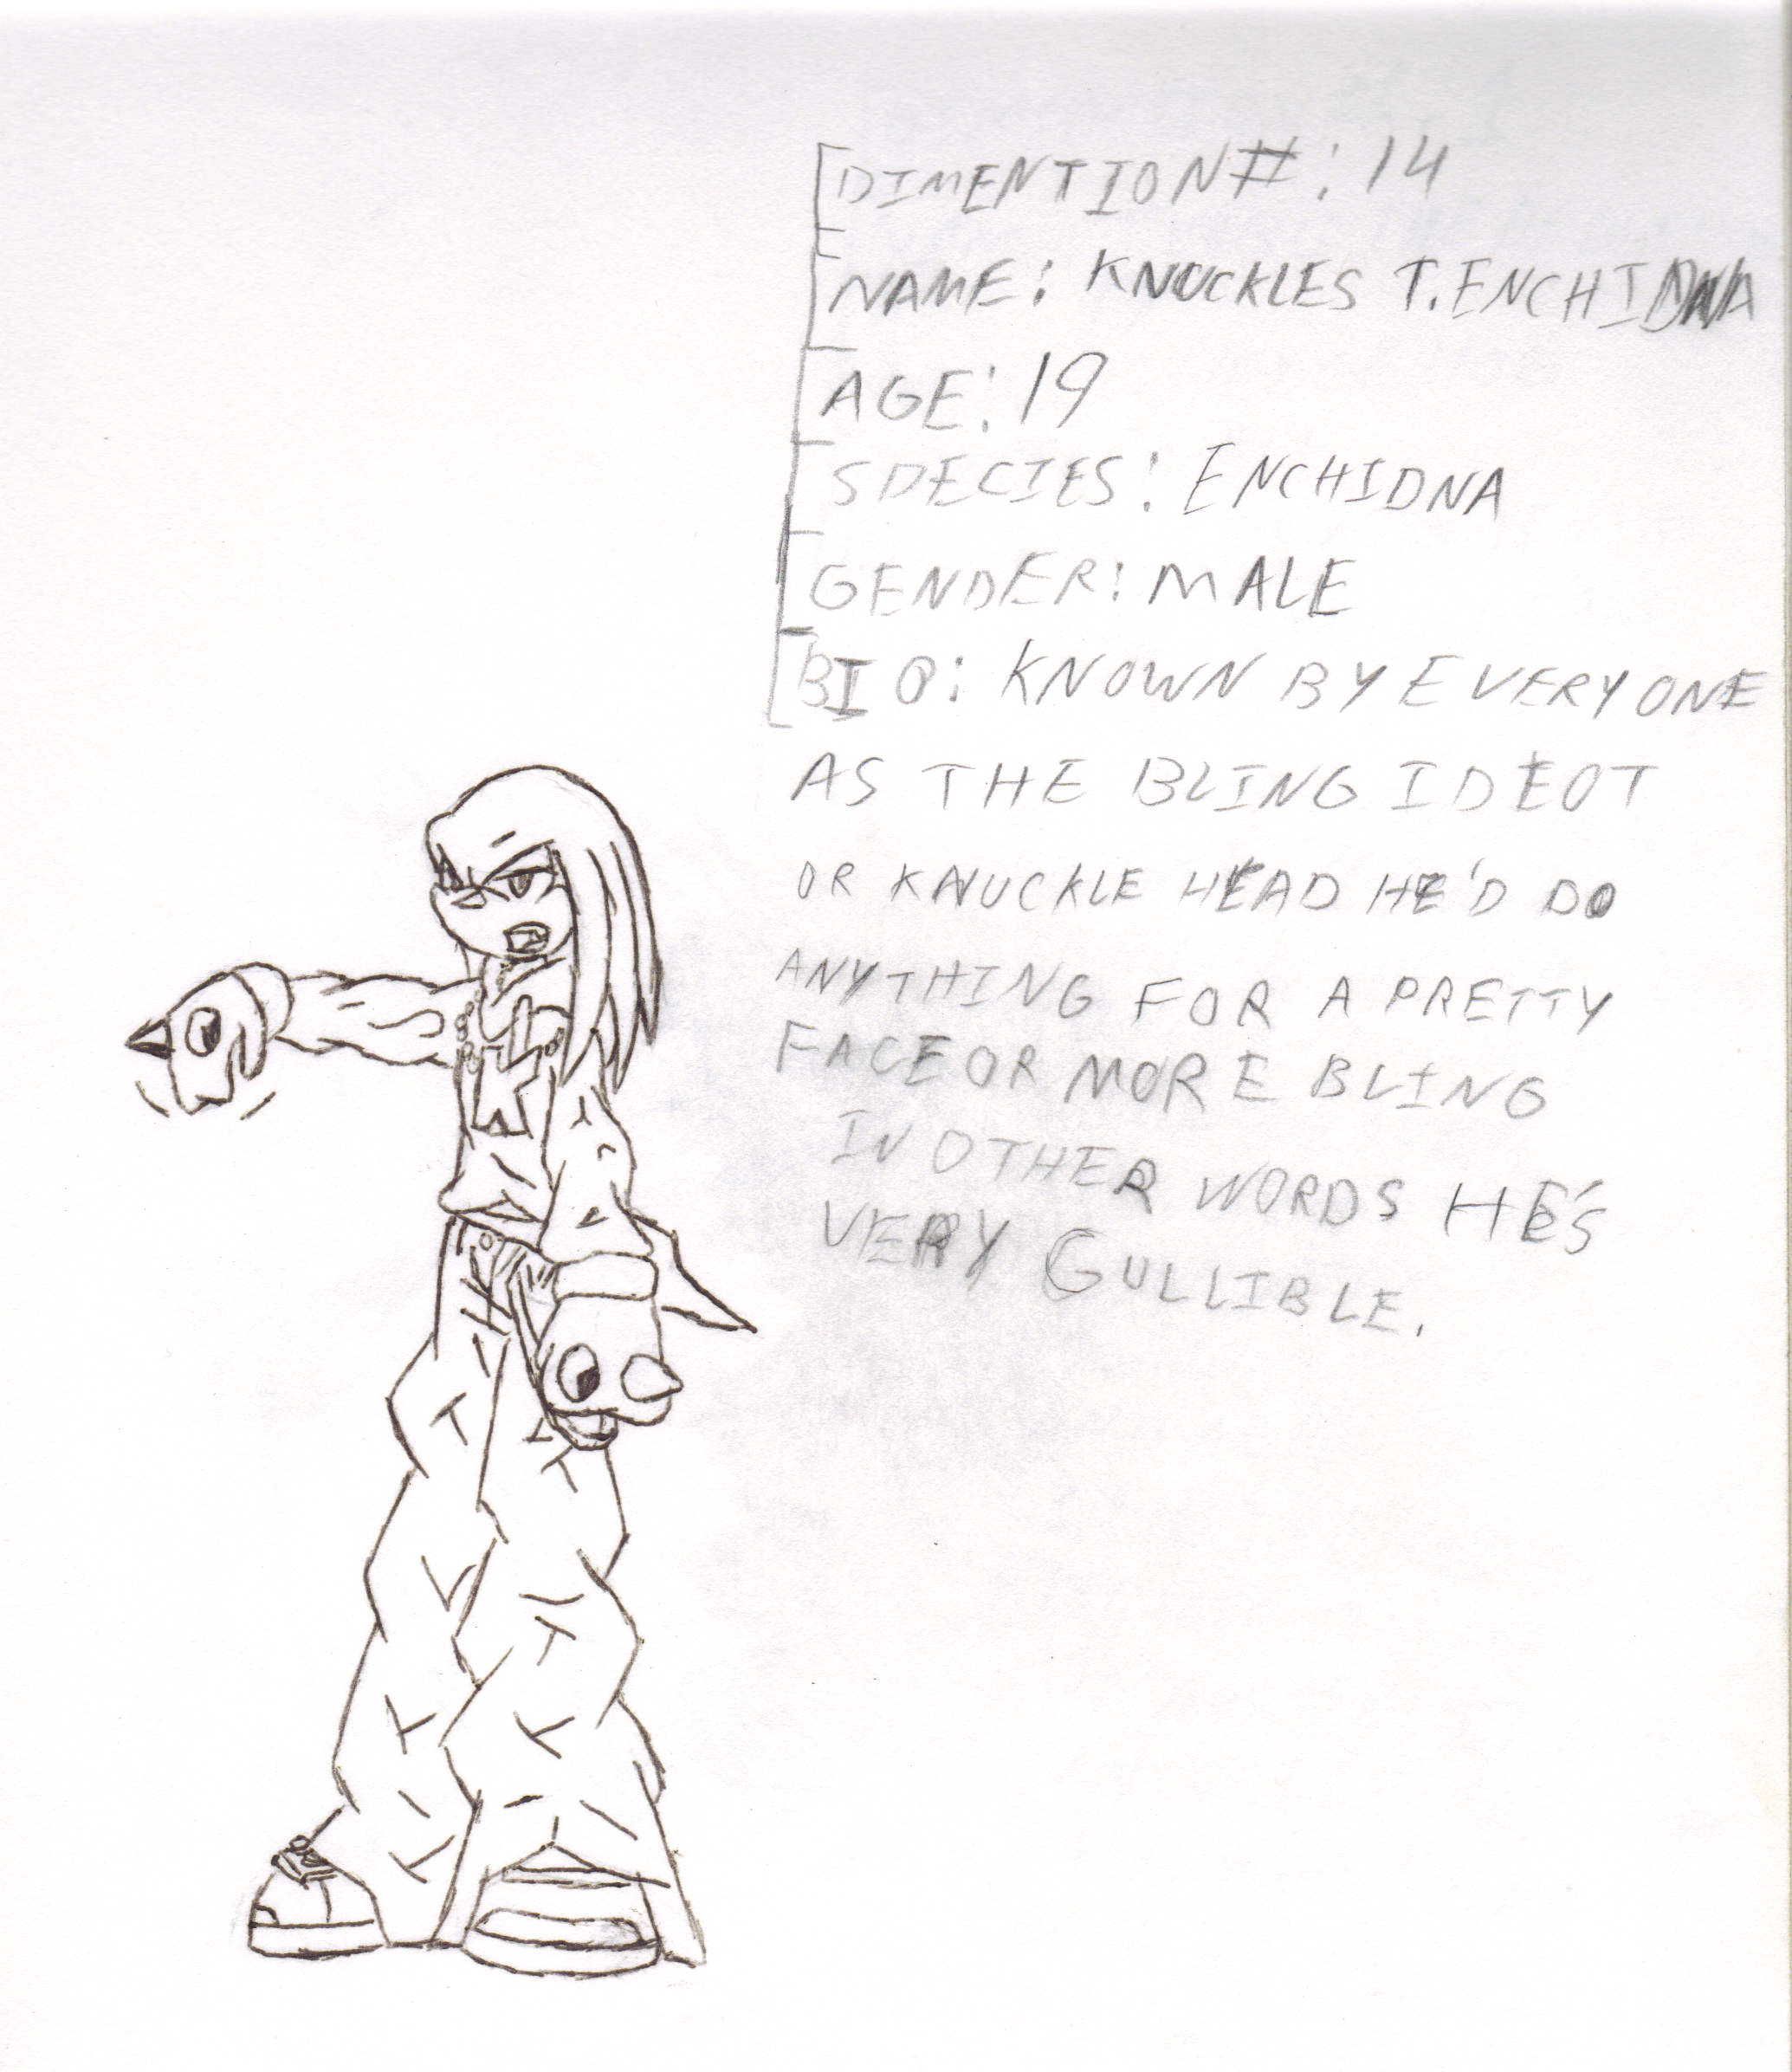 DIMENTION#: 14
NAME: KNUCKLES T. ENCHIDNA
AGE: 19
SPECIES: ENCHIDNA
GENDER: MALE
BIO: KNOWN BY EVERYONE
AS THE BLING IDEOT
OR KNUCKLE HEAD HE'D DO
ANYTHING FOR A PRETTY
FACE OR MORE BLING
IN OTHER WORDS HE'S
VERY GULLIBLE.